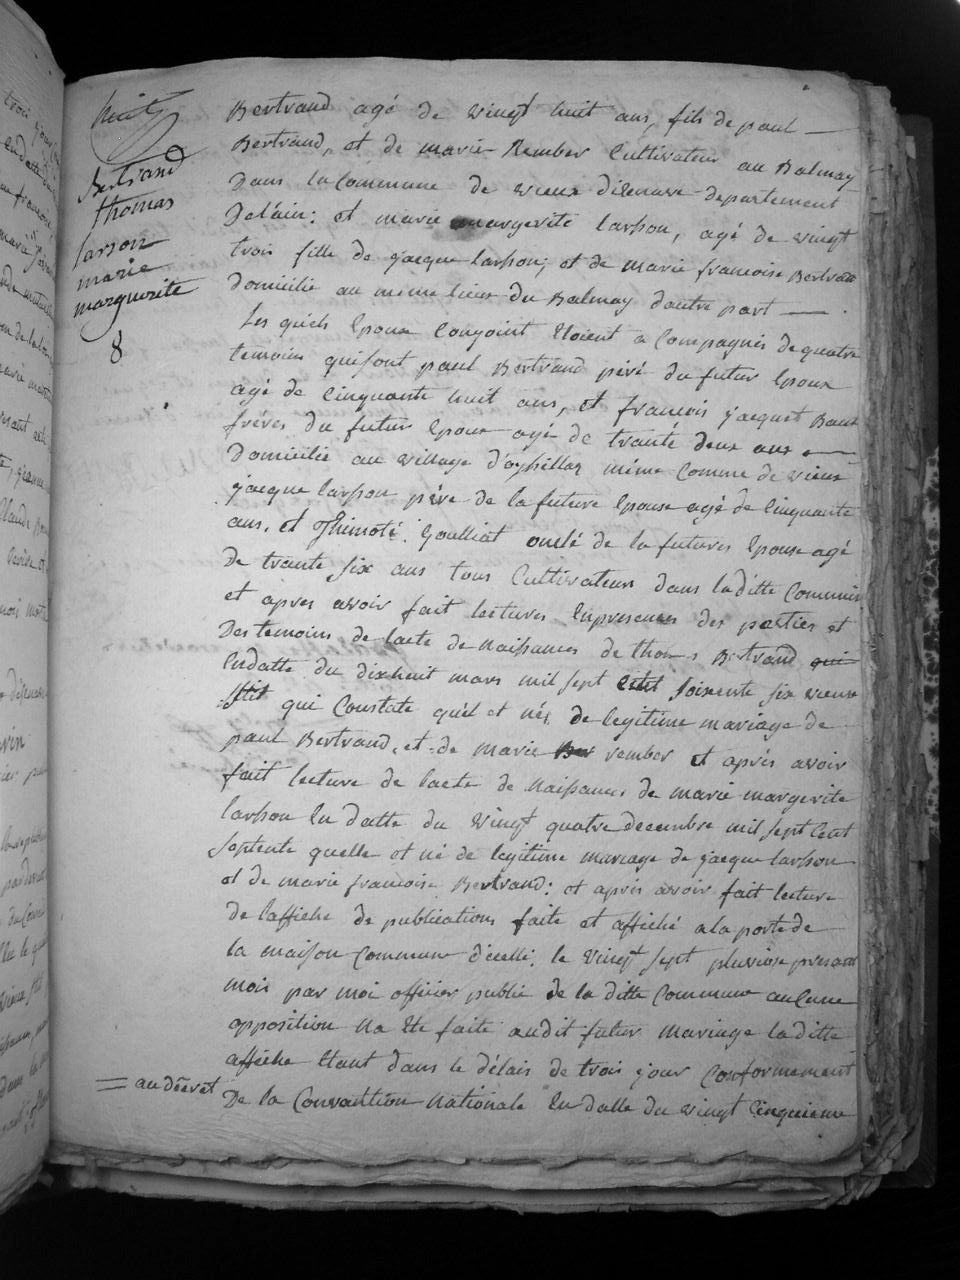 huit
Bertrand
thomas
larson
marie
marguerite
8
Bertrand agé de vingt huit ans, fils de paul
Bertrand, et de marie Rember Cultivateur au Balmay
Dans la Commune de vieux disenave departement
Delain; et marie margerite larson, agé de vingt
trois fille de jacque larson; et de marie francoise Bertrand
Domicilié au même lieux du Balmay dautre part
Les quels Epoux Conjoint Etoient a Compagnés de quatre
temoins quisont paul Bertrand péré du futur Epoux
agé de Cinquante huit ans, et francois jacquet Baux
fréres du futur Epoux agé de trante deux ans
Domicilié au village d'ayhillaz même Comme de vieux
jacque larson pére de la future Epouse agé de Cinquante
ans. et Thimoté Goulliot onclé de la futures Epouse agé
de trante six ans tous Cultivateurs dans la ditte Commune
et apres avoir fait lectures Enpresences des parties et
Des temoins de lacte de Naissances de thomas Bertrand qui
Endatte du dixhuit mars mil sept Cent soixente six vieux
Stil qui Constate quél et néz de legitime mariage de
paul Bertrand, et de marie Ber rember et aprés avoir
fait lecture de lacte de Naissances de marie margerite
larson En datte du vingt quatre decembre mil sept Cent
septente quelle et né de legitime mariage de jacque larson
et de marie francoise Bertrand: et aprés avoir fait lecture
de laffiche de publications faite et affiché a la porte de
la maison Commune dicelle; le vingt sept pluviose present
mois par moi officier public de la ditte Commune aucune
opposition Na Ete faite audit futur mariage la ditte
affiche Etant dans le délais de trois jour Conformement
= au décret
De la Convantion Nationale En datte du vingt Cinquieme